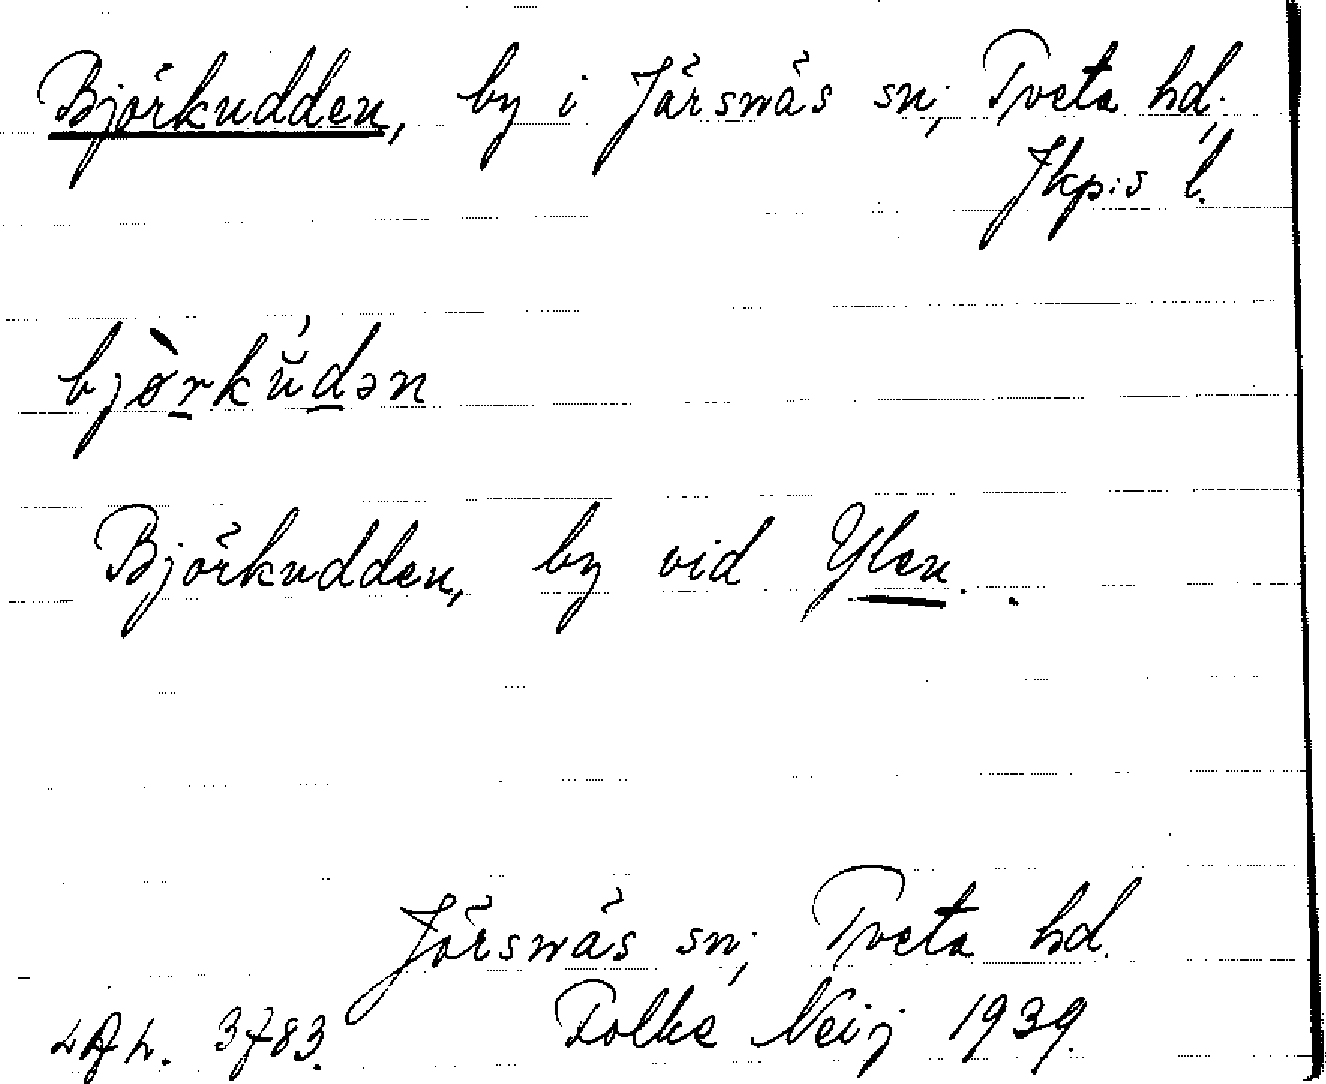 Björkudden, by i Järsnäs sn; Tveta hd,
Jkp:s l.
bjòrkŭ́dən
Björkudden, by vid Ylen.
Järsnäs sn; Tveta hd.
3783. Folke Neij 1939.